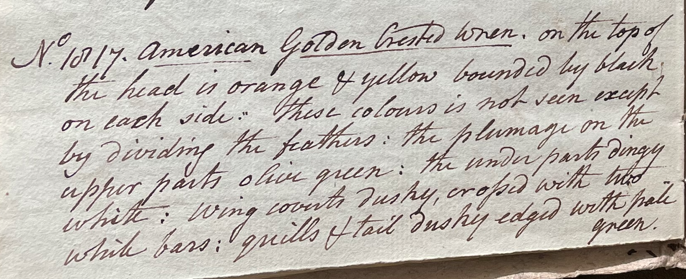 No. 1817. American Golden Crested Wren. on the top of
the head is orange & yellow bounded by black
on each side: These colours is not seen except
by dividing the feathers: the plumage on the
upper parts olive green: the under parts dingy
white: wing coverts dusky, crossed with two
white bars: quills & tail dusky edged with pale
green.